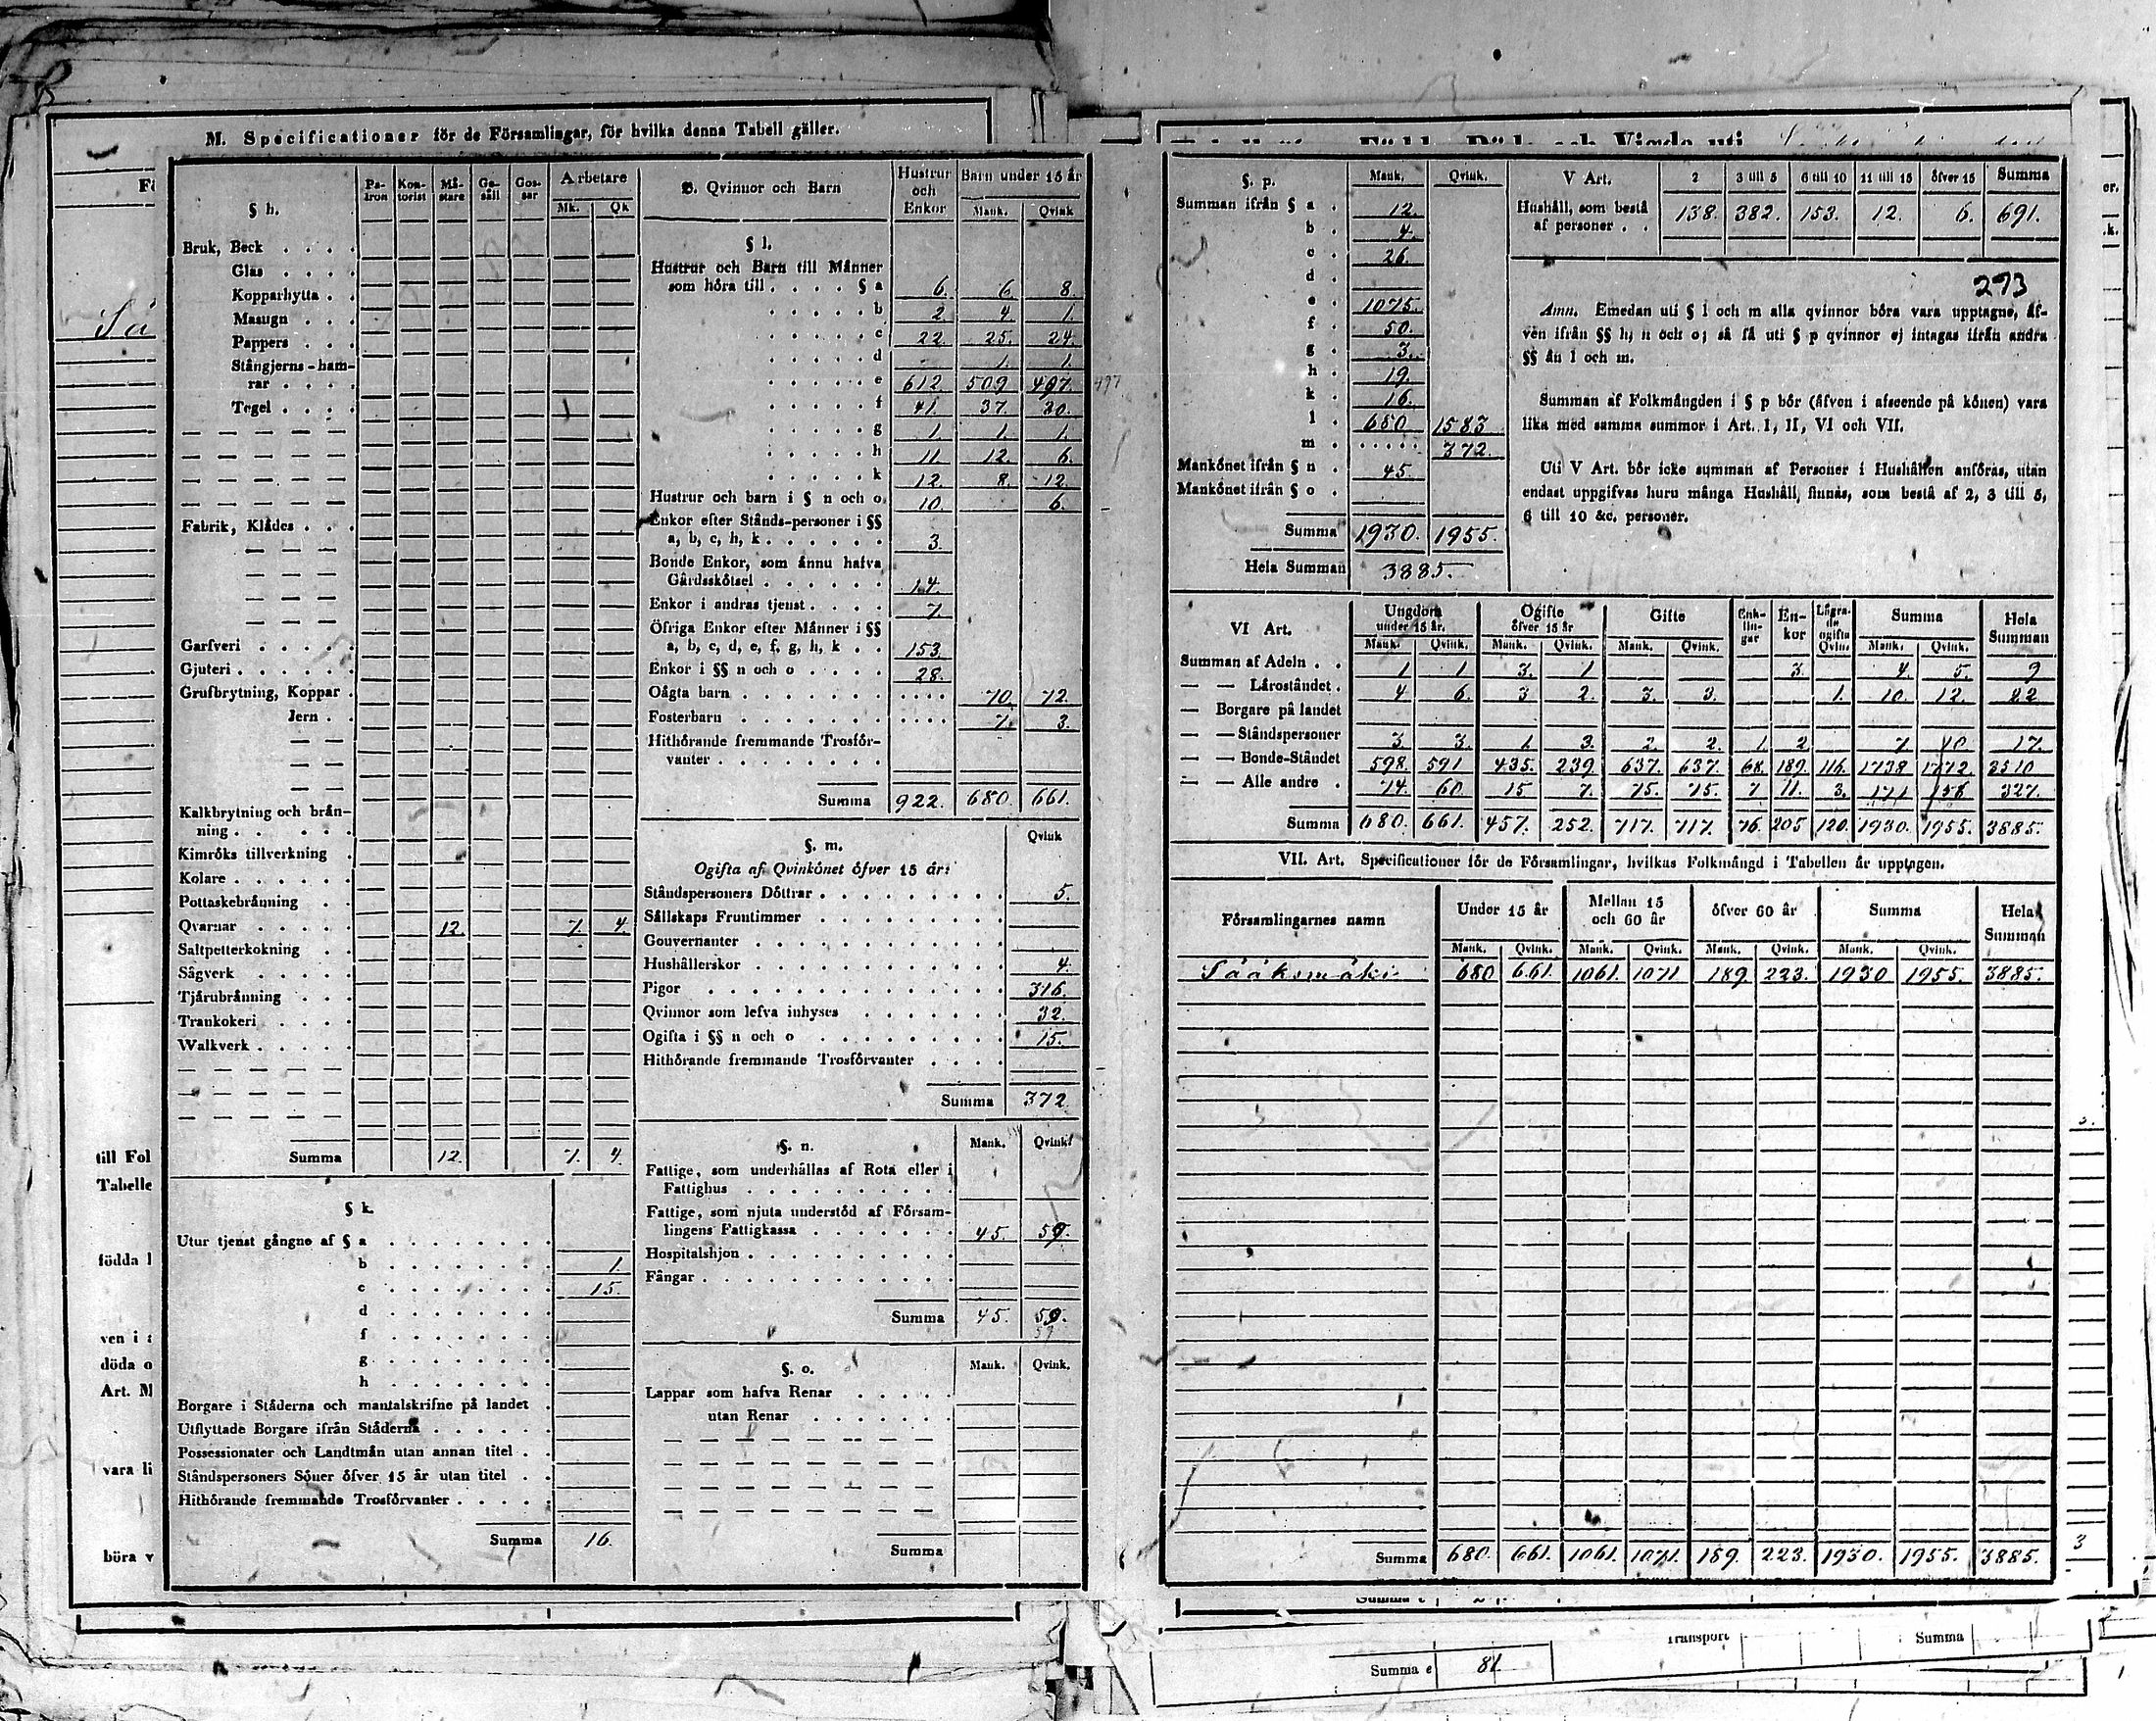 M. Specificationer för de Församlingar, för hvilka denna Tabell gäller.
§ h. Pa-tron Kon-torist Mä-stare Ge-säll Gos-sar Arbetare Mk. Qk
Bruk, Beck
Glas
Kopparhytta
Masugn
Pappers
Stångjerns-ham-
rar
Tegel
Fabrik, Klådes
Garfveri
Gjuteri
Grufbrytning, Koppar
Jern
Kalkbrytning och brån-
ning
Kimröks tillverkning
Kolare
Pottaskebrånning
Qvarnar 12. 7. 4
Saltpetterkokning
Sågverk
Tjårubrånning
Trankokeri
Walkverk
Summa 12. 7. 4.
§ k.
Utur tjenst gångne af § a
b 1.
c 15.
d
f
g
h
Borgare i Ståderna och mantalskrifne på landet
Utflyttade Borgare ifrån Ståderna
Possessionater och Landtmån utan annan titel
Ståndspersoners Söner öfver 15 år utan titel
Hithörande fremmande Trosförvanter
Summa 16.
B. Qvinnor och Barn Hustrur och Enkor Barn under 15 år Mank. Qvink
§ l.
Hustrur och Barn till Månner
som höra till § a 6. 6. 8.
b 2 4 1.
c 22. 25. 24.
d 1. 1.
e 612. 509 497. 497
f 41. 37. 30.
g 1. 1. 1.
h 11 12. 6.
k 12. 8. 12.
Hustrur och barn i § n och o 10. 6.
Enkor efter Stånds-personer i §§
a, b, c, h, k 3.
Bonde Enkor, som ånnu hafva
Gårdsskötsel 14.
Enkor i andras tjenst 7.
Öfriga Enkor efter Månner i §§
a, b, c, d, e, f, g, h, k 153.
Enkor i §§ n och o 28.
Oågta barn 70. 72.
Fosterbarn 7. 3.
Hithörande fremmande Trosför-
vanter
Summa 922. 680. 661.
§. m. Qvink
Ogifta af Qvinkönet öfver 15 år:
Ståndspersoners Döttrar 5.
Sållskaps Fruntimmer
Gouvernanter
Hushållerskor 4.
Pigor 316.
Qvinnor som lefva inhyses 32.
Ogifta i §§ n och o 15.
Hithörande fremmande Trosförvanter
Summa 372.
§. n. Mank. Qvink
Fattige, som underhållas af Rota eller i
Fattighus
Fattige, som njuta understöd af Försam-
lingens Fattigkassa 45. 59.
Hospitalshjon
Fångar
Summa 45. 59.
59
§. o. Mank. Qvink.
Lappar som hafva Renar
utan Renar
Summa
§. p. Mank. Qvink.
Summan ifrån § a 12.
b 4.
c 26.
d
e 1075.
f 50.
g 3.
h 19.
k 16.
l 680 1583
m 372.
Mankönet ifrån § n 45.
Mankönet ifrån § o
Summa 1930. 1955.
Hela Summan 3885.
V Art. 2 3 till 5 6 till 10 11 till 15 öfver 15 Summa
Hushåll, som bestå
af personer 138. 382. 153. 12. 6. 691.
293
Anm. Emedan uti § l och m alla qvinnor böra vara upptagne, åf-
ven ifrån §§ h, n och o; så få uti § p qvinnor ej intagas ifrån andra
§§ ån l och m.
Summan af Folkmångden i § p bör (åfven i afseende på könen) vara
lika med samma summor i Art. I, II, VI och VII.
Uti V Art. bör icke summan af Personer i Hushållen anföras, utan
endast uppgifvas huru många Hushåll, finnas, som bestå af 2, 3 till 5,
6 till 10 &c. personer.
VI Art. Ungdom under 15 år. Ogifte öfver 15 år Gifte Enk-lin-gar En-kor Lägra-de ogifta Qvin. Summa Hela Summan
Mank. Qvink. Mank. Qvink. Mank. Qvink. Mank. Qvink.
Summan af Adeln 1 1 3. 1 3. 4. 5. 9
Läroståndet 4 6. 3 2. 3. 3. 1. 10. 12. 22
Borgare på landet
Ståndspersoner 3. 3. 1. 3. 2. 2. 1. 2 7 10 17.
Bonde-Ståndet 598. 591 435. 239 637. 637. 68. 189. 116. 1738 1772. 3510
Alle andre 74. 60. 15 7. 75. 75. 7 11. 3. 171 156 327.
Summa 680. 661. 457. 252. 717. 717. 76. 205 120. 1930. 1955. 3885.
VII. Art. Specificationer för de Församlingar, hvilkas Folkmångd i Tabellen är upptagen.
Församlingarnes namn Under 15 år Mellan 15 och 60 år öfver 60 år Summa Hela Summan
Mank. Qvink. Mank. Qvink. Mank. Qvink. Mank. Qvink.
Sääksmäki 680 661. 1061. 1071. 189. 223. 1930 1955. 3885.
Summa 680. 661. 1061. 1071. 189. 223. 1930. 1955. 3885.
till Fol
Tabelle
födda
ven i
döda o
Art. M
vara li
böra v
3
Transport Summa
Summa e 81